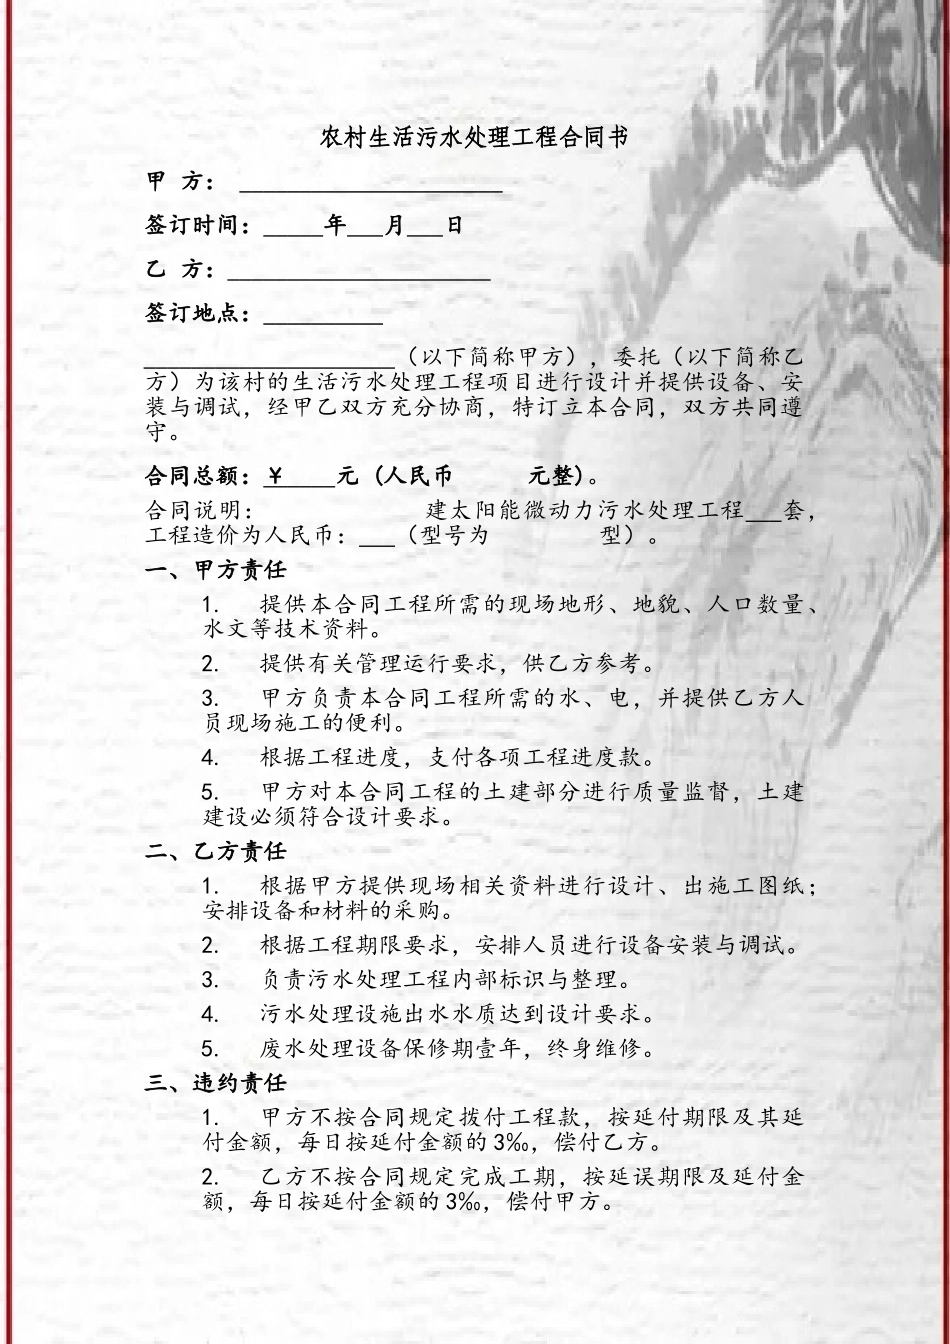 农村生活污水处理工程合同书
甲 方： ______________________
签订时间：_____年___月___日
乙 方：______________________
签订地点：__________
_____________________（以下简称甲方），委托（以下简称乙
方）为该村的生活污水处理工程项目进行设计并提供设备、安
装与调试，经甲乙双方充分协商，特订立本合同，双方共同遵
守。
合同总额：￥____元 (人民币      元整)。
合同说明：              建太阳能微动力污水处理工程___套，
工程造价为人民币：___（型号为         型）。
一、甲方责任
1. 提供本合同工程所需的现场地形、地貌、人口数量、
水文等技术资料。
2. 提供有关管理运行要求，供乙方参考。
3. 甲方负责本合同工程所需的水、电，并提供乙方人
员现场施工的便利。
4. 根据工程进度，支付各项工程进度款。
5. 甲方对本合同工程的土建部分进行质量监督，土建
建设必须符合设计要求。
二、乙方责任
1. 根据甲方提供现场相关资料进行设计、出施工图纸；
安排设备和材料的采购。
2. 根据工程期限要求，安排人员进行设备安装与调试。
3. 负责污水处理工程内部标识与整理。
4. 污水处理设施出水水质达到设计要求。
5. 废水处理设备保修期壹年，终身维修。
三、违约责任
1. 甲方不按合同规定拨付工程款，按延付期限及其延
付金额，每日按延付金额的 3‰，偿付乙方。
2. 乙方不按合同规定完成工期，按延误期限及延付金
额，每日按延付金额的 3‰，偿付甲方。